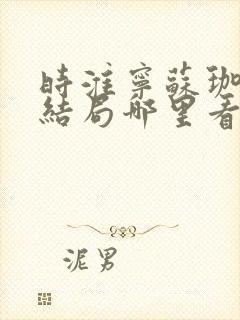 時淮寧蘇珈
結局哪里看
泥男